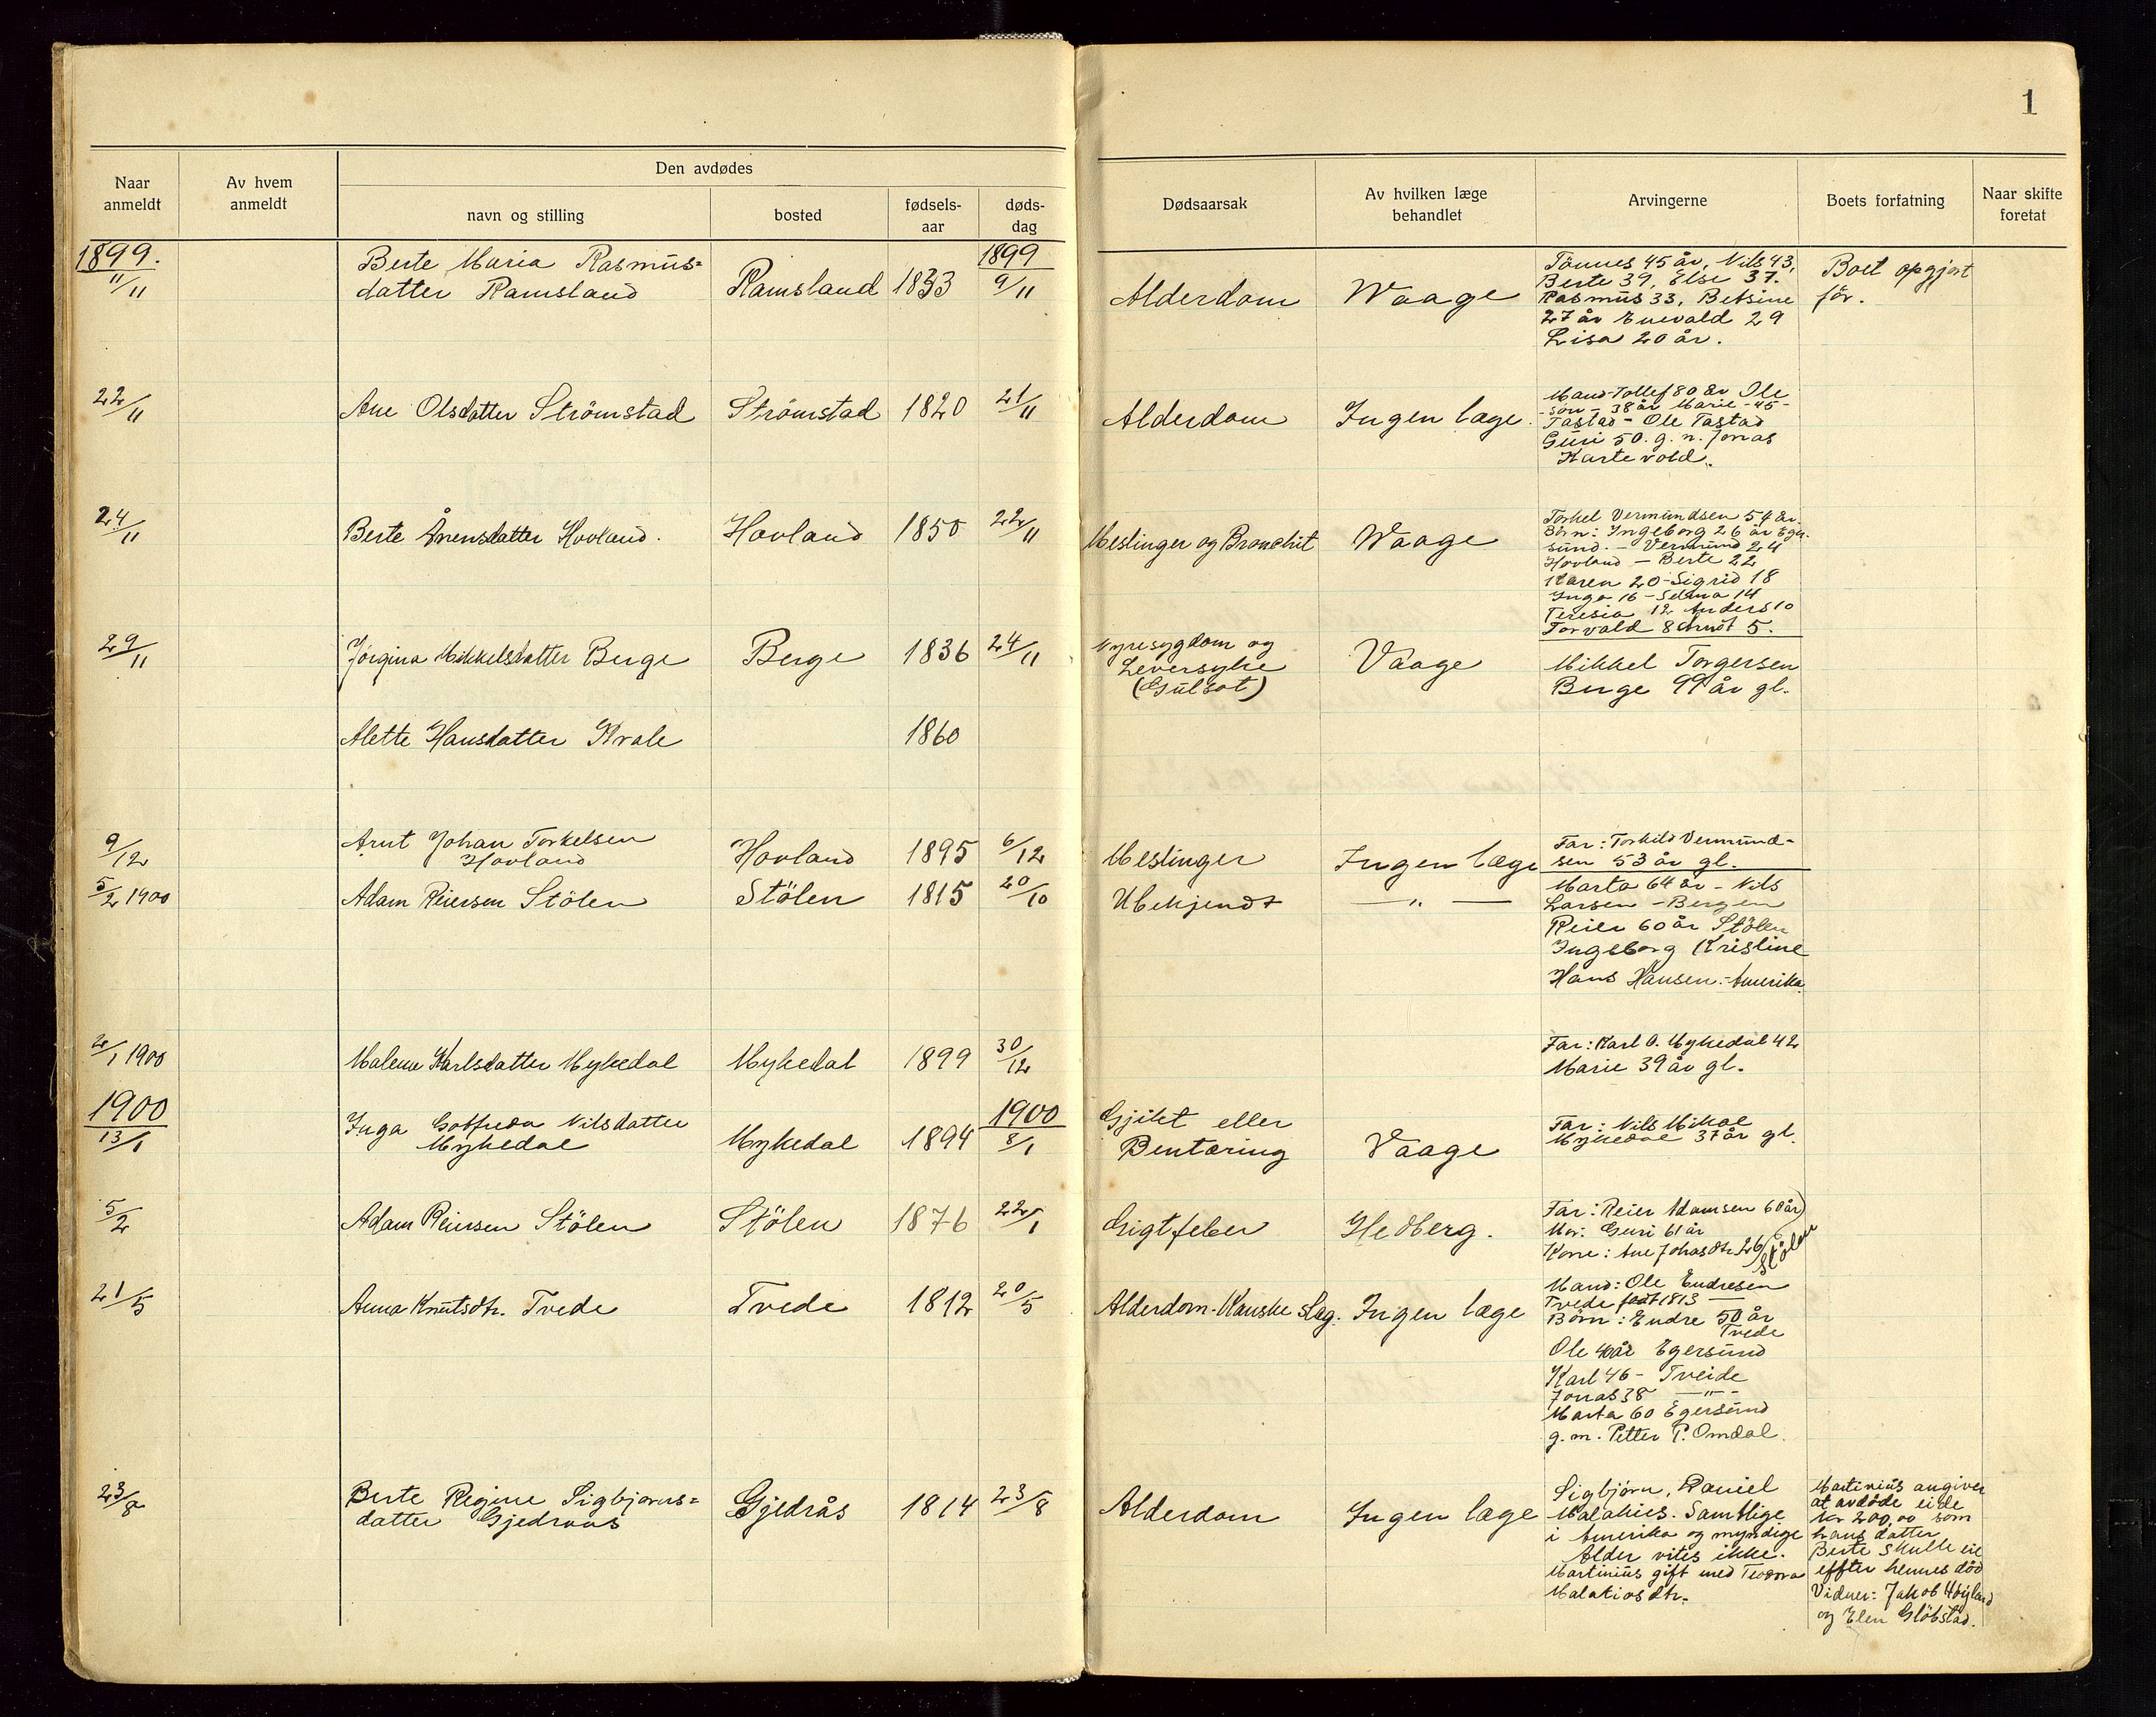 1
Naar anmeldt
Av hvem anmeldt
Den avdødes
navn og stilling
bosted
fødsels-aar
døds-dag
Dødsaarsak
Av hvilken læge behandlet
Arvingerne
Boets forfatning
Naar skifte foretat
1899.
11/11
Berte Maria Rasmus=
datter Ramsland
Ramsland
1833
1899
9/11
Alderdom
Waage
Tönnes 45 år, Nils 43,
Berte 39, Else 37.
Rasmus 33, Betsine
27 år Enevald 29
Lisa 20 år.
Boet opgjort
för.
22/11
Ane Olsdatter Strömstad
Strömstad
1820
21/11
Alderdom
Ingen læge.
Mand Tollef 80 år Ole
-sön - 38 år Marie - 45 -
Tastad - Ole Tastad
Guri 50. g. n. Jonas
Kartevold.
24/11
Berte Ånensdatter Hovland.
Hovland
1850
22/11
Meslinger og Bronchit
Waage
Torkel Vermundsen 54 år.
Börn: Ingeborg 26 år Eger-
sund. - Vermund 24
Hovland - Berte 22
Karen 20 - Sigrid 18
Inga 16 - Selma 14
Teresia 12 Anders 10
Torvald 8 Arndt 5.
29/11
Jörgina Mikkelsdatter Berge
Berge
1836
24/11
Nyresygdom og
Leversyke
(Gulsot)
Vaage
Mikkel Torgersen
Berge 99 år gl.
Alette Hansdatter Kvale
1860
9/12
Arnt Johan Torkelsen
Hovland
Hovland
1895
6/12
Meslinger
Ingen læge
Far: Torkild Vermund-
sen 53 år gl.
5/2 1900
Adam Reiersen Stölen
Stölen
1815
20/10
Ubekjendt
— " —
Marta 64 år - Nils
Larsen - Bergen
Reier 60 år Stölen
Ingeborg Kristine
Hans Hansen - Amerika.
2/1 1900
Malene Karlsdatter Mykedal
Mykedal
1899
30/12
Far: Karl O. Mykedal 42
Marie 39 år gl.
1900
13/1
Inga Gotfreda Nilsdatter
Mykedal
Mykedal
1894
1900
8/1
Gjikt eller
Bentæring
Vaage
Far: Nils Mikal
Mykedal 37 år gl.
5/2
Adam Reiersen Stölen
Stölen
1876
22/1
Gigtfeber
Hedberg.
Far: Reier Adamsen 60 år)
Mor: Guri 61 år
Kone: Ane Johasdtr. 26 Stölen
21/5
Anna Knutsdtr. Tvede
Tvede
1812
20/5
Alderdom - Kanske slag.
Ingen læge
Mand: Ole Endresen
Tvede født 1813
Börn: Endre 50 år
Tvede
Ole 40 år Egersund
Karl 46 - Tveide
Jonas 38 — " -
Marta 60 Egersund
g. m. Petter P. Omdal.
23/8
Berte Regine Sigbjørns=
datter Gjedraas
Gjedrås
1814
23/8
Alderdom
Ingen læge
Sigbjörn, Daniel
Malakies. Samtlige
i Amerika og myndige
Alder vites ikke.
Martinius gift med Teodora
Malakiosdtr.
Martinius angiver
at avdöde eide
kr 200,00 som
hans datter
Berte skulle eie
effter hennes död
Vidner: Jakob Höyland
og Elen Glöbstad.